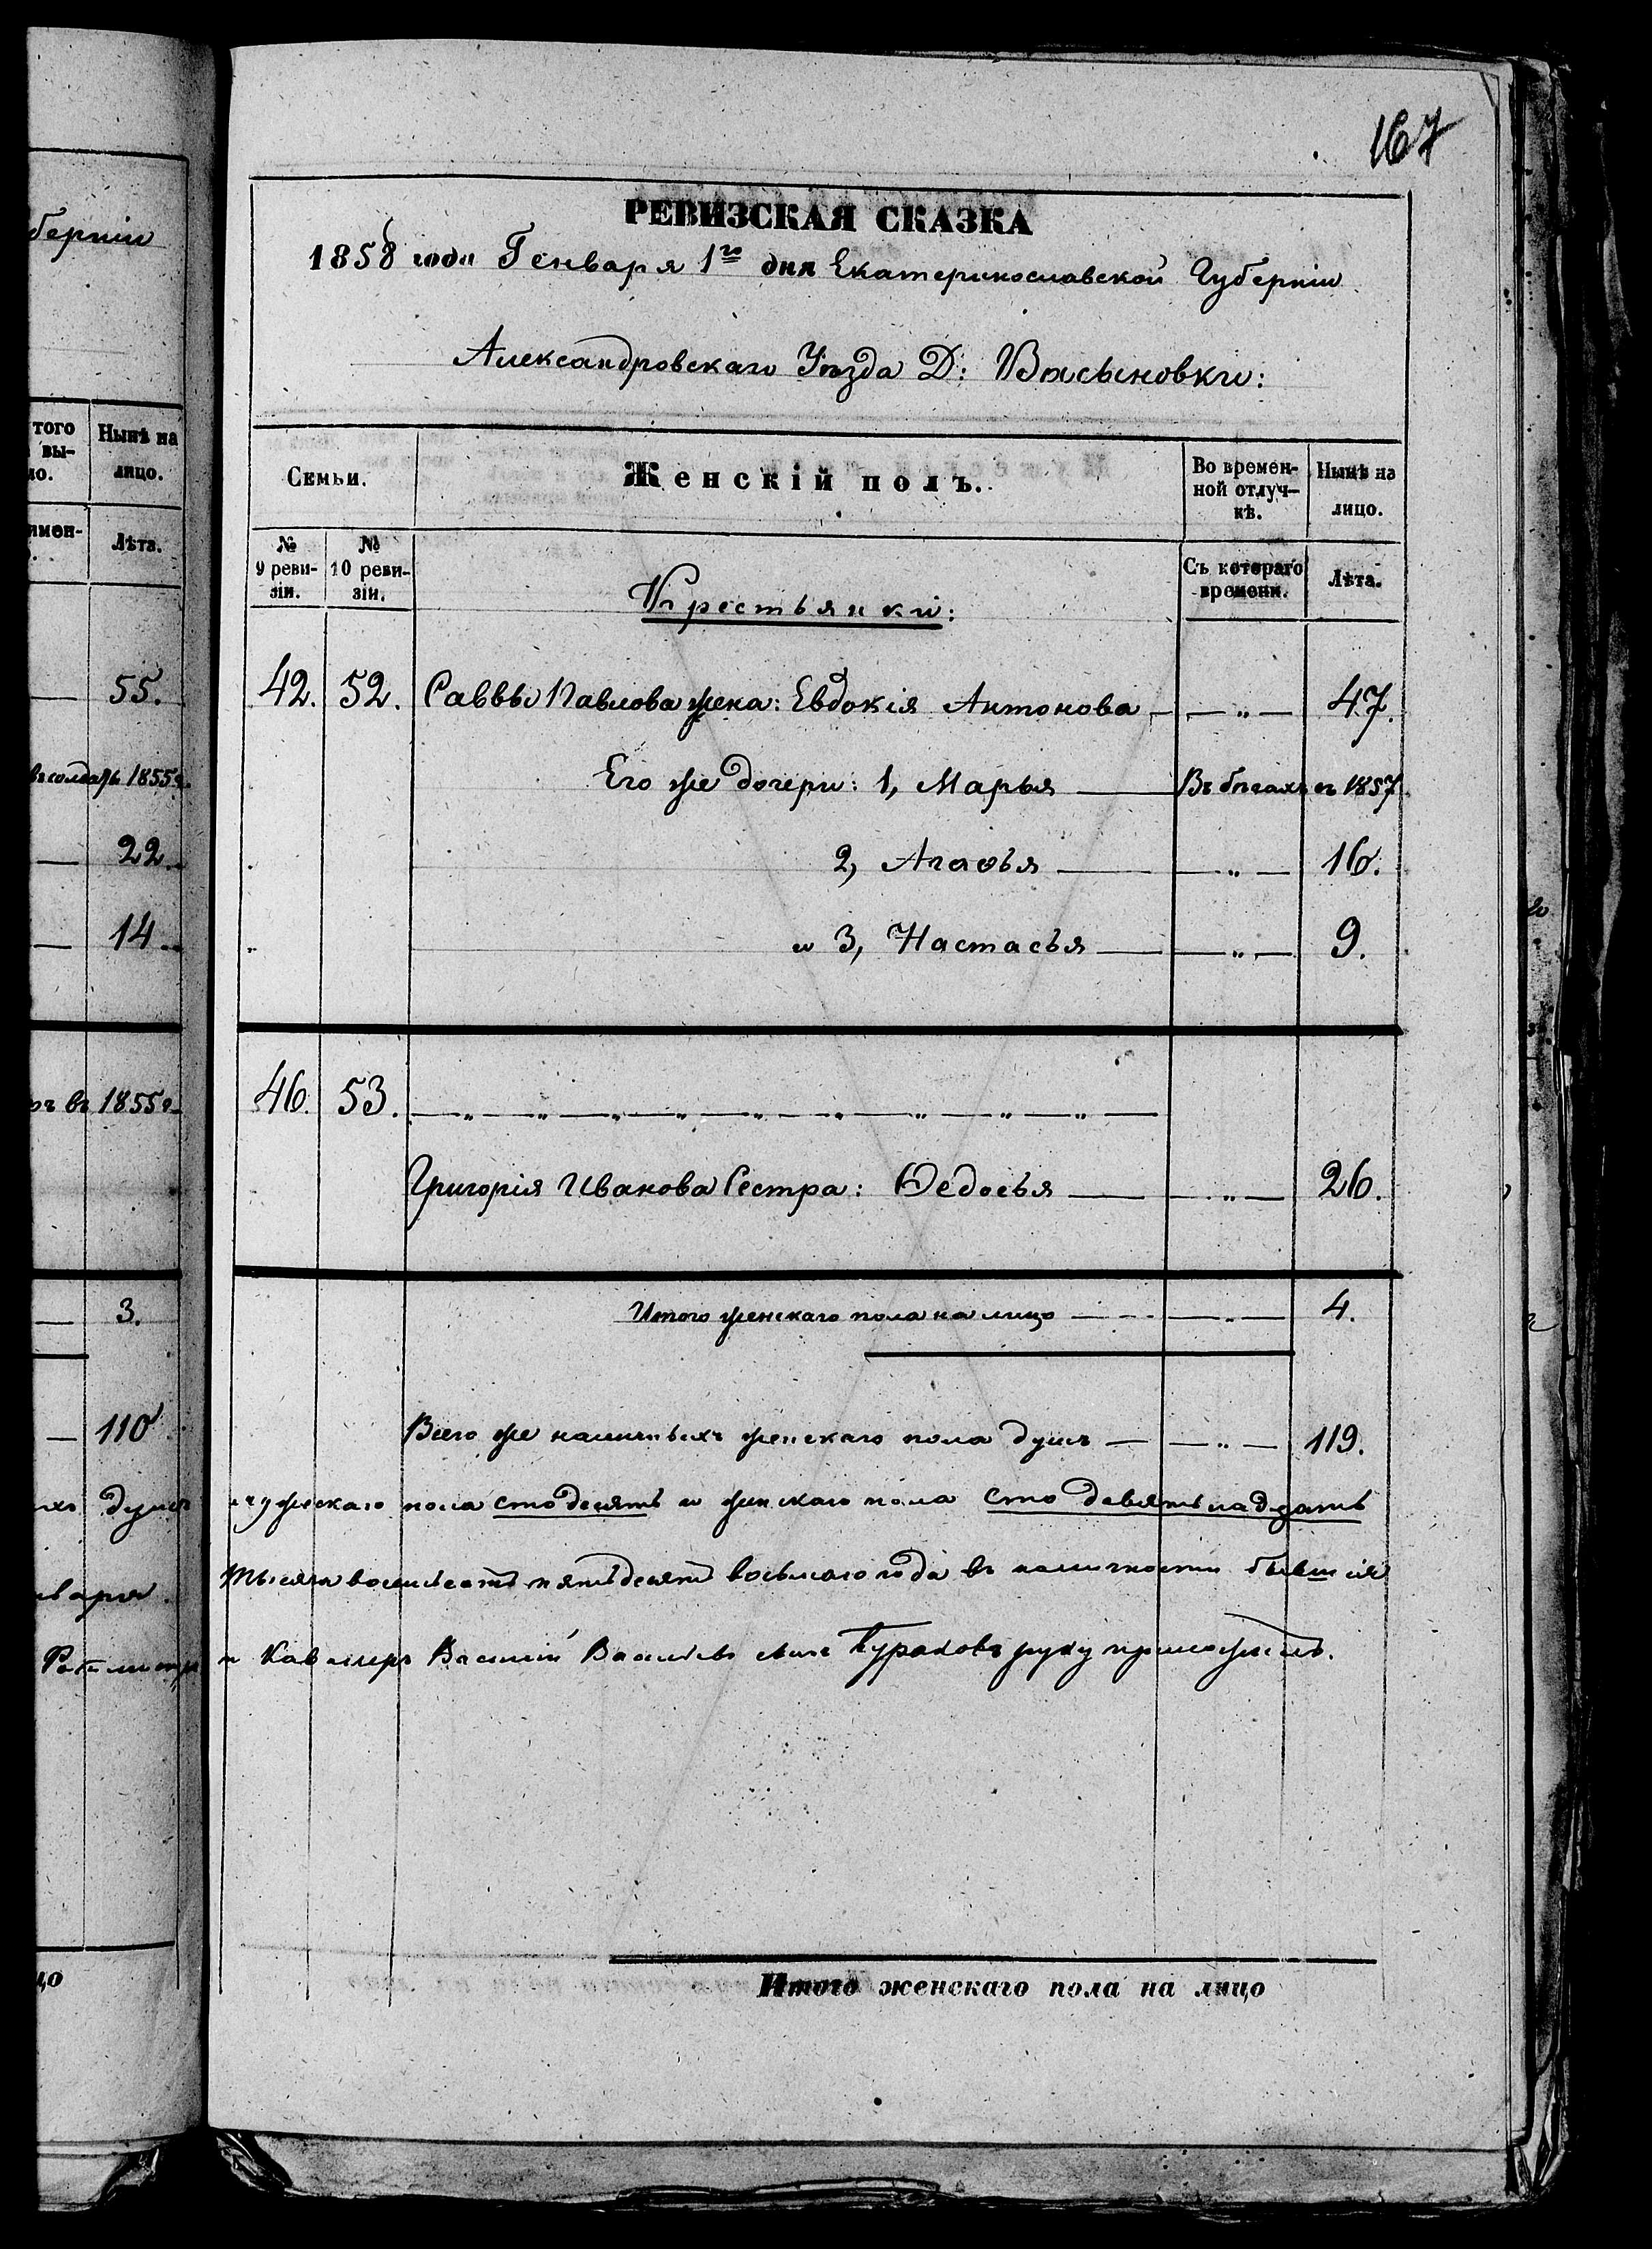 167
РЕВИЗСКАЯ СКАЗКА
1858 года Генваря 1го дня Екатеринославской Губерніи
Александровскаго Уѣзда Д: Васыновки:
Семьи.
Женскій полъ.
Во времен-
ной отлуч-
кѣ.
Нынѣ на
лицо.
№
9 реви-
зіи.
№
10 реви-
зіи.
Съ котораго
времени.
Лѣта.
Крестьянки:
42. 52. Саввы Павлова жена: Евдокія Антонова — „ — 47.
Его же дочери: 1, Марья — Въ бѣгахъ съ 1857
2, Агафья — „ — 16.
и 3, Настасья — „ — 9.
46. 53. — „ — „ — „ — „ — „ — „ — „ — „ — „ —
Григорія Иванова Сестра: Ѳедосья — „ — 26.
Итого женскаго пола на лицо — „ — 4.
Всего же наличныхъ женскаго пола душъ — „ — 119.
мужескаго пола сто десять и женскаго пола сто девятьнадцать
тысяча восемьсотъ пятьдесятъ восьмаго года въ наличности бывшія
и Кавалеръ Василий Васильевъ сынъ руку приложилъ.
Итого женскаго пола на лицо
берніи
того
вы-
ло.
Нынѣ на
лицо.
имен-
Лѣта.
55.
въ солдаты 1855 г.
22.
14.
въ 1855 г.
3.
110
душъ
нваря
цо